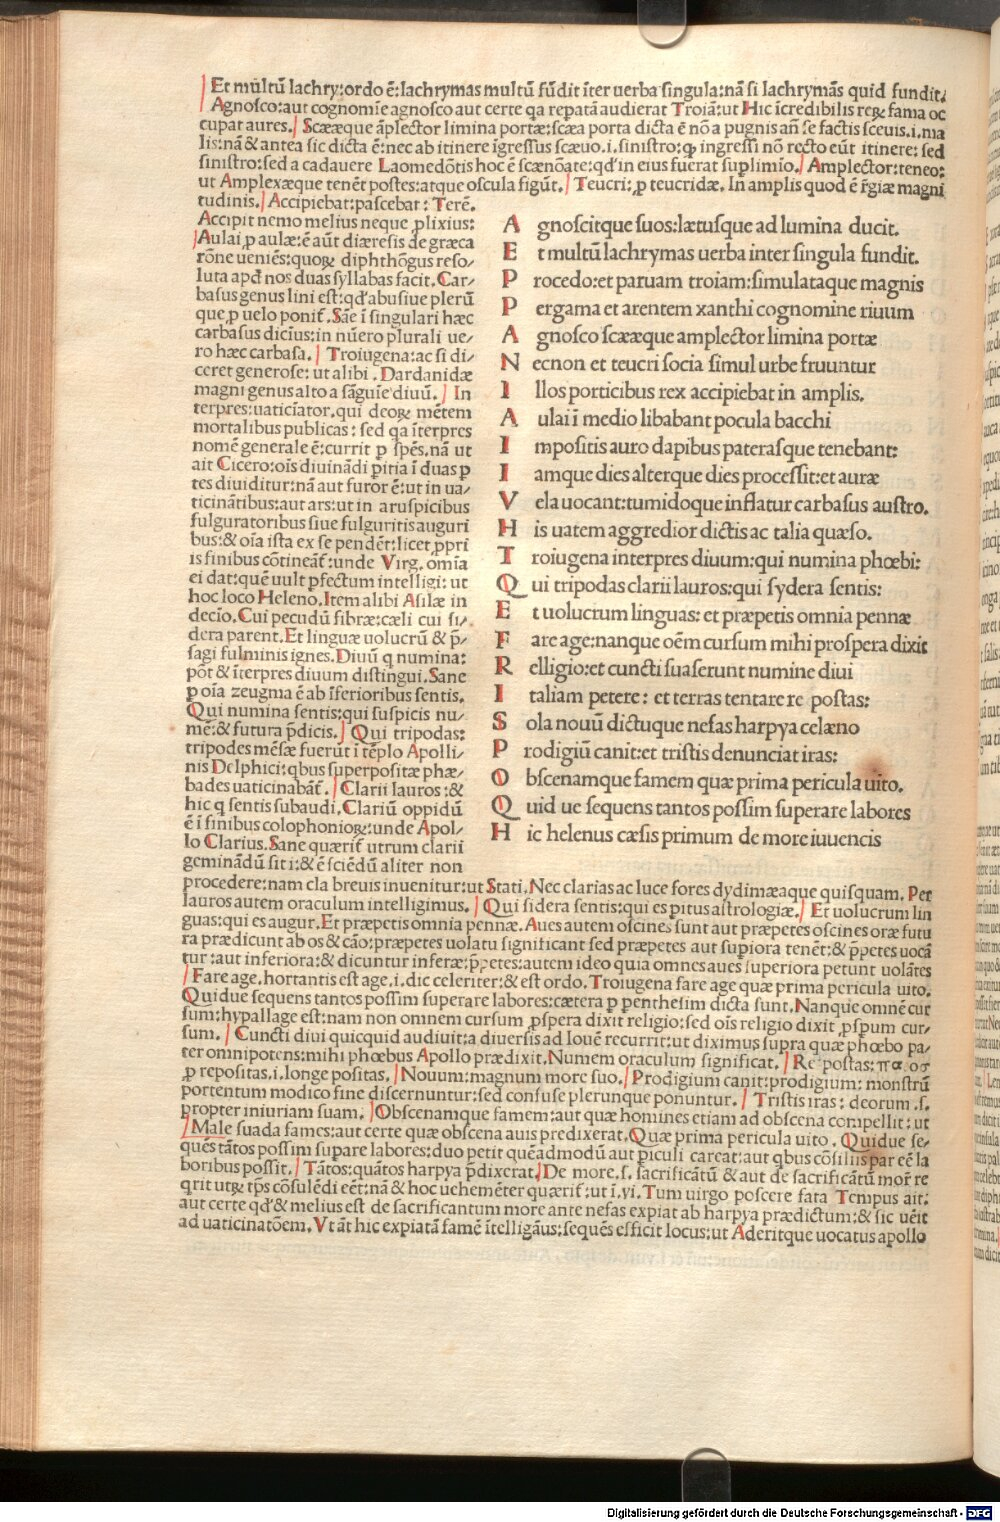 Et multū lachry:ordo ē:lachrymas multū fūdit īter uerba singula:nā si lachrymās quid fundit.
Agnosco:aut cognomīe agnosco aut certe qa repatā audierat Troiā:ut Hic īcredibilis reꝝ fama oc
cupat aures. Scææque āplector limina portæ:scæa porta dicta ē nō a pugnis añ se factis sceuis.i.ma
lis:nā & antea sic dicta ē:nec ab itinere īgressus scæuo.i.sinistro:ꝙ īgressi nō recto eūt itinere: sed
sinistro:sed a cadauere Laomedōtis hoc ē scænoate:qd' in eius fuerat suplimīo. Amplector:teneo:
ut Amplexæque tenēt postes:atque oscula figūt. Teucri:ꝓ teucridæ. In amplis quod ē r̄giæ magni
tudinis. Accipiebat:pascebat: Terē.
Accipit nemo melius neque ꝓlixius:
Aulai ꝓ aulæ:ē aūt diæresis de græca
rōne ueniēs:quoꝝ diphthōgus reso/
luta apd' nos duas syllabas facit. Car/
basus genus lini est:qd'abusiue plerū
que,p uelo ponit̄. Sāe ī singulari hæc
carbasus dicīus:in nūero plurali ue/
ro hæc carbasa. Troiugena:ac si di/
ceret generose: ut alibi . Dardanidæ
magni genus alto a sāguīe diuū. In
terpres:uaticīator.qui deoꝝ mētem
mortalibus publicas: sed qa īterpres
nomē generale ē:currit p spēs.nā ut
ait Cicero:oīs diuinādi pitia ī duas p
tes diuiditur:nā aut furor ē:ut in ua/
ticinātibus:aut ars:ut in aruspicibus
fulguratoribus siue fulguritis auguri
bus:& oīa ista ex se pendēt:licet ꝓpri
is finibus cōtineāt̄:unde Virg. omīa
ei dat:quē uult pfectum intelligi: ut
hoc loco Heleno.Item alibi Asilæ in
decio. Cui pecudū fibræ:cæli cui si/
dera parent.Et linguæ uolucrū & p̄/
sagi fulminis ignes.Diuū q numina:
pōt & īterpres diuum distingui. Sane
ꝓ oīa zeugma ē ab īferioribus sentis.
Qui numina sentis:qui suspicis nu/
mē:& futura p̄dicis. Qui tripodas:
tripodes mēsæ fuerūt ī tēplo Apolli/
nis Delphici:qbus superpositæ phæ/
bades uaticinabāt̄. Clarii lauros :&
hic q sentis subaudi. Clariū oppidū
ē ī finibus colophonioꝝ:unde Apol/
lo Clarius. Sane quærit̄ utrum clarii
geminādū sit i:& ē sciēdū aliter non
A gnoscitque suos:lætusque ad lumina ducit.
E t multū lachrymas uerba inter singula fundit.
P rocedo:et paruam troiam:simulataque magnis
P ergama et arentem xanthi cognomine riuum
A gnosco scææque amplector limina portæ
N ecnon et teucri socia simul urbe fruuntur
I llos porticibus rex accipiebat in amplis.
A ulai ī medio libabant pocula bacchi
I mpositis auro dapibus paterasque tenebant:
I amque dies alterque dies processit:et auræ
V ela uocant:tumidoque inflatur carbasus austro.
H is uatem aggredior dictis ac talia quæso.
T roiugena interpres diuum:qui numina phœbi:
Q ui tripodas clarii lauros:qui sydera sentis:
E t uolucrum linguas: et præpetis omnia pennæ
F are age:nanque oēm cursum mihi prospera dixit
R elligio:et cuncti suaserunt numine diui
I taliam petere: et terras tentare re postas:
S ola nouū dictuque nefas harpya celæno
P rodigiū canit:et tristis denunciat iras:
O bscenamque famem quæ prima pericula uito.
Q uid ue sequens tantos possim superare labores
H ic helenus cæsis primum de more iuuencis
procedere:nam cla breuis inuenitur:ut Stati. Nec clarias ac luce fores dydimæaque quisquam. Per
lauros autem oraculum intelligimus. Qui sidera sentis:qui es pitus astrologiæ. Et uolucrum lin
guas:qui es augur.Et præpetis omnia pennæ. Aues autem oscines sunt aut præpetes oscines oræ futu
ra prædicunt ab os & cāo:præpetes uolatu significant sed præpetes aut supiora tenēt:& p̄petes uocā
tur :aut inferiora:& dicuntur inferæ:p̄petes:autem ideo quia omnes aues superiora petunt uolātes
Fare age.hortantis est age.i.dic celeriter:& est ordo. Troiugena fare age quæ prima pericula uito.
Quidue sequens tantos possim superare labores:cætera p penthesim dicta sunt. Nanque omnē cur
sum:hypallage est:nam non omnem cursum ꝓspera dixit religio:sed oīs religio dixit ꝓspum cur/
sum. Cuncti diui quicquid audiuit:a diuersis ad Iouē recurrit:ut diximus supra quæ phœbo pa/
ter omnipotens:mihi phœbus Apollo prædixit. Numem oraculum significat. Re postas:πα.οσ
ꝓ repositas.i.longe positas. Nouum:magnum more suo. Prodigium canit:prodigium: monstrū
portentum modico fine discernuntur:sed confuse plerunque ponuntur. Tristis iras: deorum .s.
propter iniuriam suam. Obscenamque famem:aut quæ homines etiam ad obscena compellit: ut
Male suada fames:aut certe quæ obscena auis predixerat. Quæ prima pericula uito . Quidue se/
quēs tātos possim supare labores:duo petit quēadmodū aut piculi careat:aut qbus cōsiliis par eē la
boribus possit. Tātos:quātos harpya p̄dixerat. De more.s.sacrificātū & aut de sacrificātū mor̄ re
qrit utꝝ tp̄s cōsulēdi eēt:nā & hoc uehemēter quærit̄:ut ī.vi. Tum uirgo poscere fata Tempus ait:
aut certe qd'& melius est de sacrificantum more ante nefas expiat ab harpya prædictum:& sic uēit
ad uaticinatōem. Vt āt hic expiatā famē ītelligāus:sequēs efficit locus:ut Aderitque uocatus apollo
Digitalisierung gefördert durch die Deutsche Forschungsgemeinschaft - DFG